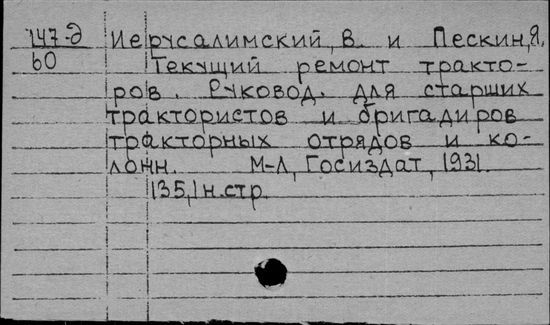 147-д Иерусалимский, В. и Пескин, Я.
60 Текущий ремонт тракто-
ров. Руковод. для старших
трактористов и бригадиров
тракторных отрядов и ко-
лонн. М-Л, Госиздат, 1931.
135, 1 н. стр.